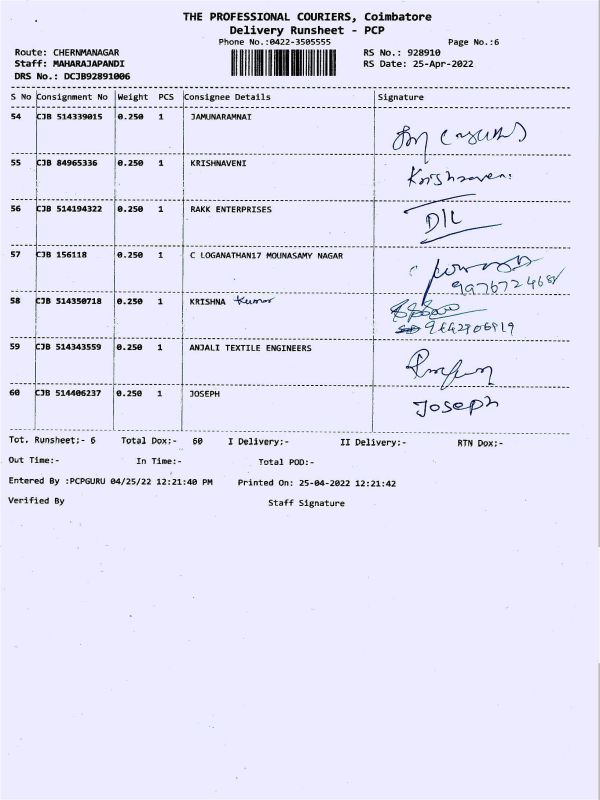 THE PROFESSIONAL COURIERS, Coimbatore
Delivery Runsheet - PCP
Phone No.:0422-3505555 Page No.:6
Route: CHERNMANAGAR RS No.: 928910
Staff: MAHARAJAPANDI RS Date: 25-Apr-2022
DRS No.: DCJB92891006
S No Consignment No Weight PCS Consignee Details Signature
54 CJB 514339015 0.250 1 JAMUNARAMNAI
55 CJB 84965336 0.250 1 KRISHNAVENI Krishnaveni
56 CJB 514194322 0.250 1 RAKK ENTERPRISES D/L
57 CJB 156118 0.250 1 C LOGANATHAN17 MOUNASAMY NAGAR
58 CJB 514350718 0.250 1 KRISHNA Kumar
59 CJB 514343559 0.250 1 ANJALI TEXTILE ENGINEERS
60 CJB 514406237 0.250 1 JOSEPH Joseph
Tot. Runsheet:- 6 Total Dox:- 60 I Delivery:- II Delivery:- RTN Dox:-
Out Time:- In Time:- Total POD:-
Entered By :PCPGURU 04/25/22 12:21:40 PM Printed On: 25-04-2022 12:21:42
Verified By Staff Signature